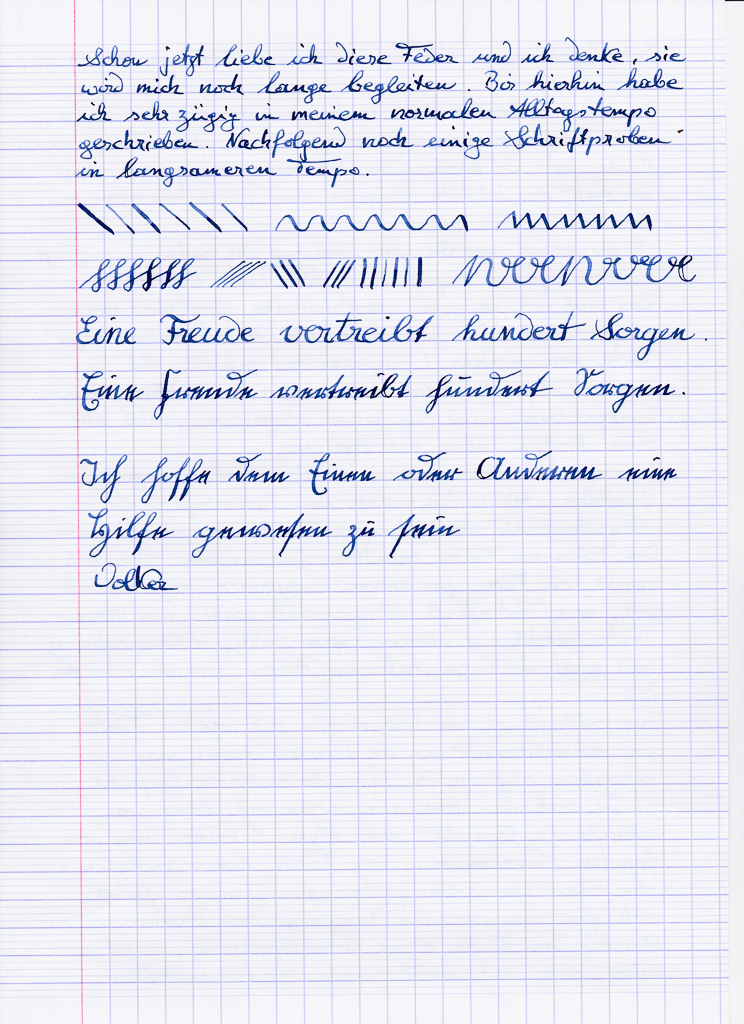 Schon jetzt liebe ich diese Feder und ich denke, sie
wird mich noch lange begleiten. Bis hierhin habe
ich sehr zügig in meinem normalen Alltagstempo
geschrieben. Nachfolgend noch einige Schriftproben
in langsameren Tempo.
Eine Freude vertreibt hundert Sorgen.
Eine Freude vertreibt hundert Sorgen.
Ich hoffe dem Einen oder Anderen eine
Hilfe gewesen zu sein
Volker